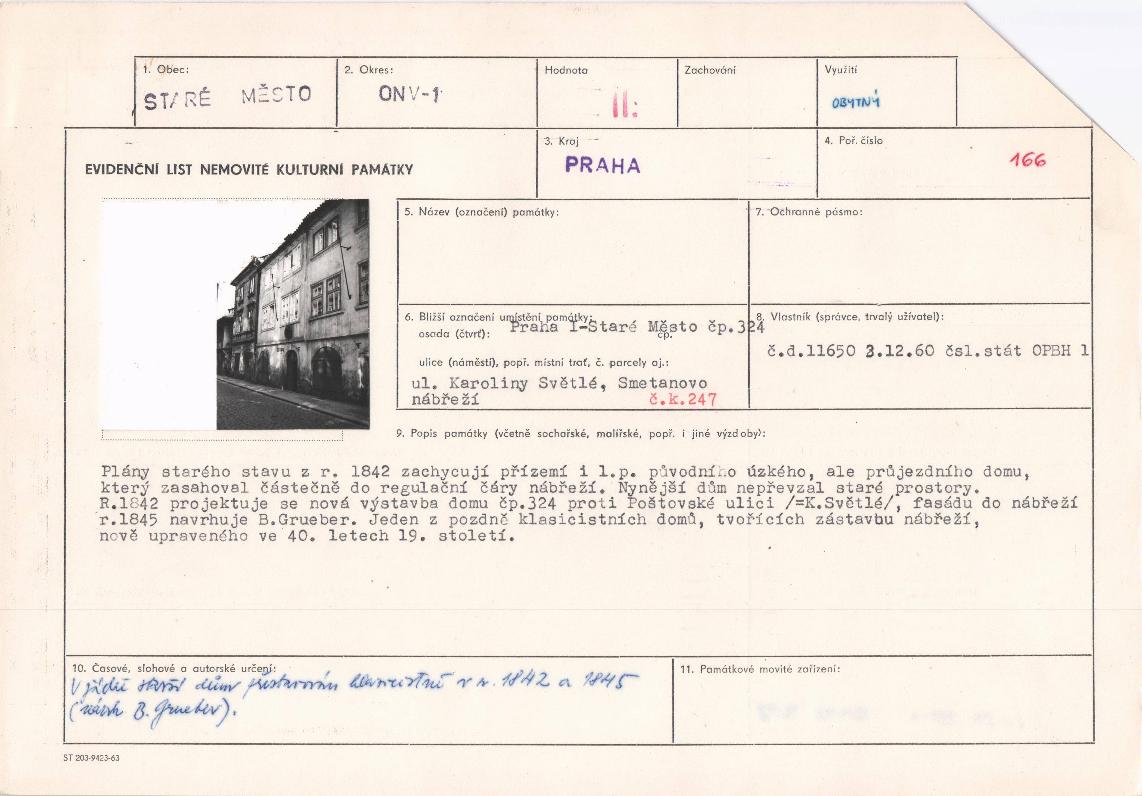 1. Obec:
STARÉ MĚSTO
2. Okres:
ONV-1
Hodnota
II:
Zachování
Využití
OBYTNÝ
EVIDENČNÍ LIST NEMOVITÉ KULTURNÍ PAMÁTKY
3. Kraj
PRAHA
4. Poř. číslo
166
5. Název (označení) památky:
7. Ochranné pásmo:
6. Bližší označení umístění památky:
osada (čtvrť): Praha 1-Staré Město čp.324
čp.
ulice (náměstí), popř. místní trať, č. parcely aj.:
ul. Karoliny Světlé, Smetanovo
nábřeží č.k.247
8. Vlastník (správce, trvalý uživatel):
č.d.11650 3.12.60 čsl.stát OPBH 1
9. Popis památky (včetně sochařské, malířské, popř. i jiné výzdoby):
Plány starého stavu z r. 1842 zachycují přízemí i 1.p. původního úzkého, ale průjezdního domu,
který zasahoval částečně do regulační čáry nábřeží. Nynější dům nepřevzal staré prostory.
R.1842 projektuje se nová výstavba domu čp.324 proti Poštovské ulici /=K.Světlé/, fasádu do nábřeží
r.1845 navrhuje B.Grueber. Jeden z pozdně klasicistních domů, tvořících zástavbu nábřeží,
nově upraveného ve 40. letech 19. století.
10. Časové, slohové a autorské určení:
V jádře starší dům přestavován klasicistně v r. 1842 a 1845
(návrh B. Grueber).
11. Památkové movité zařízení:
ST 203-9423-63